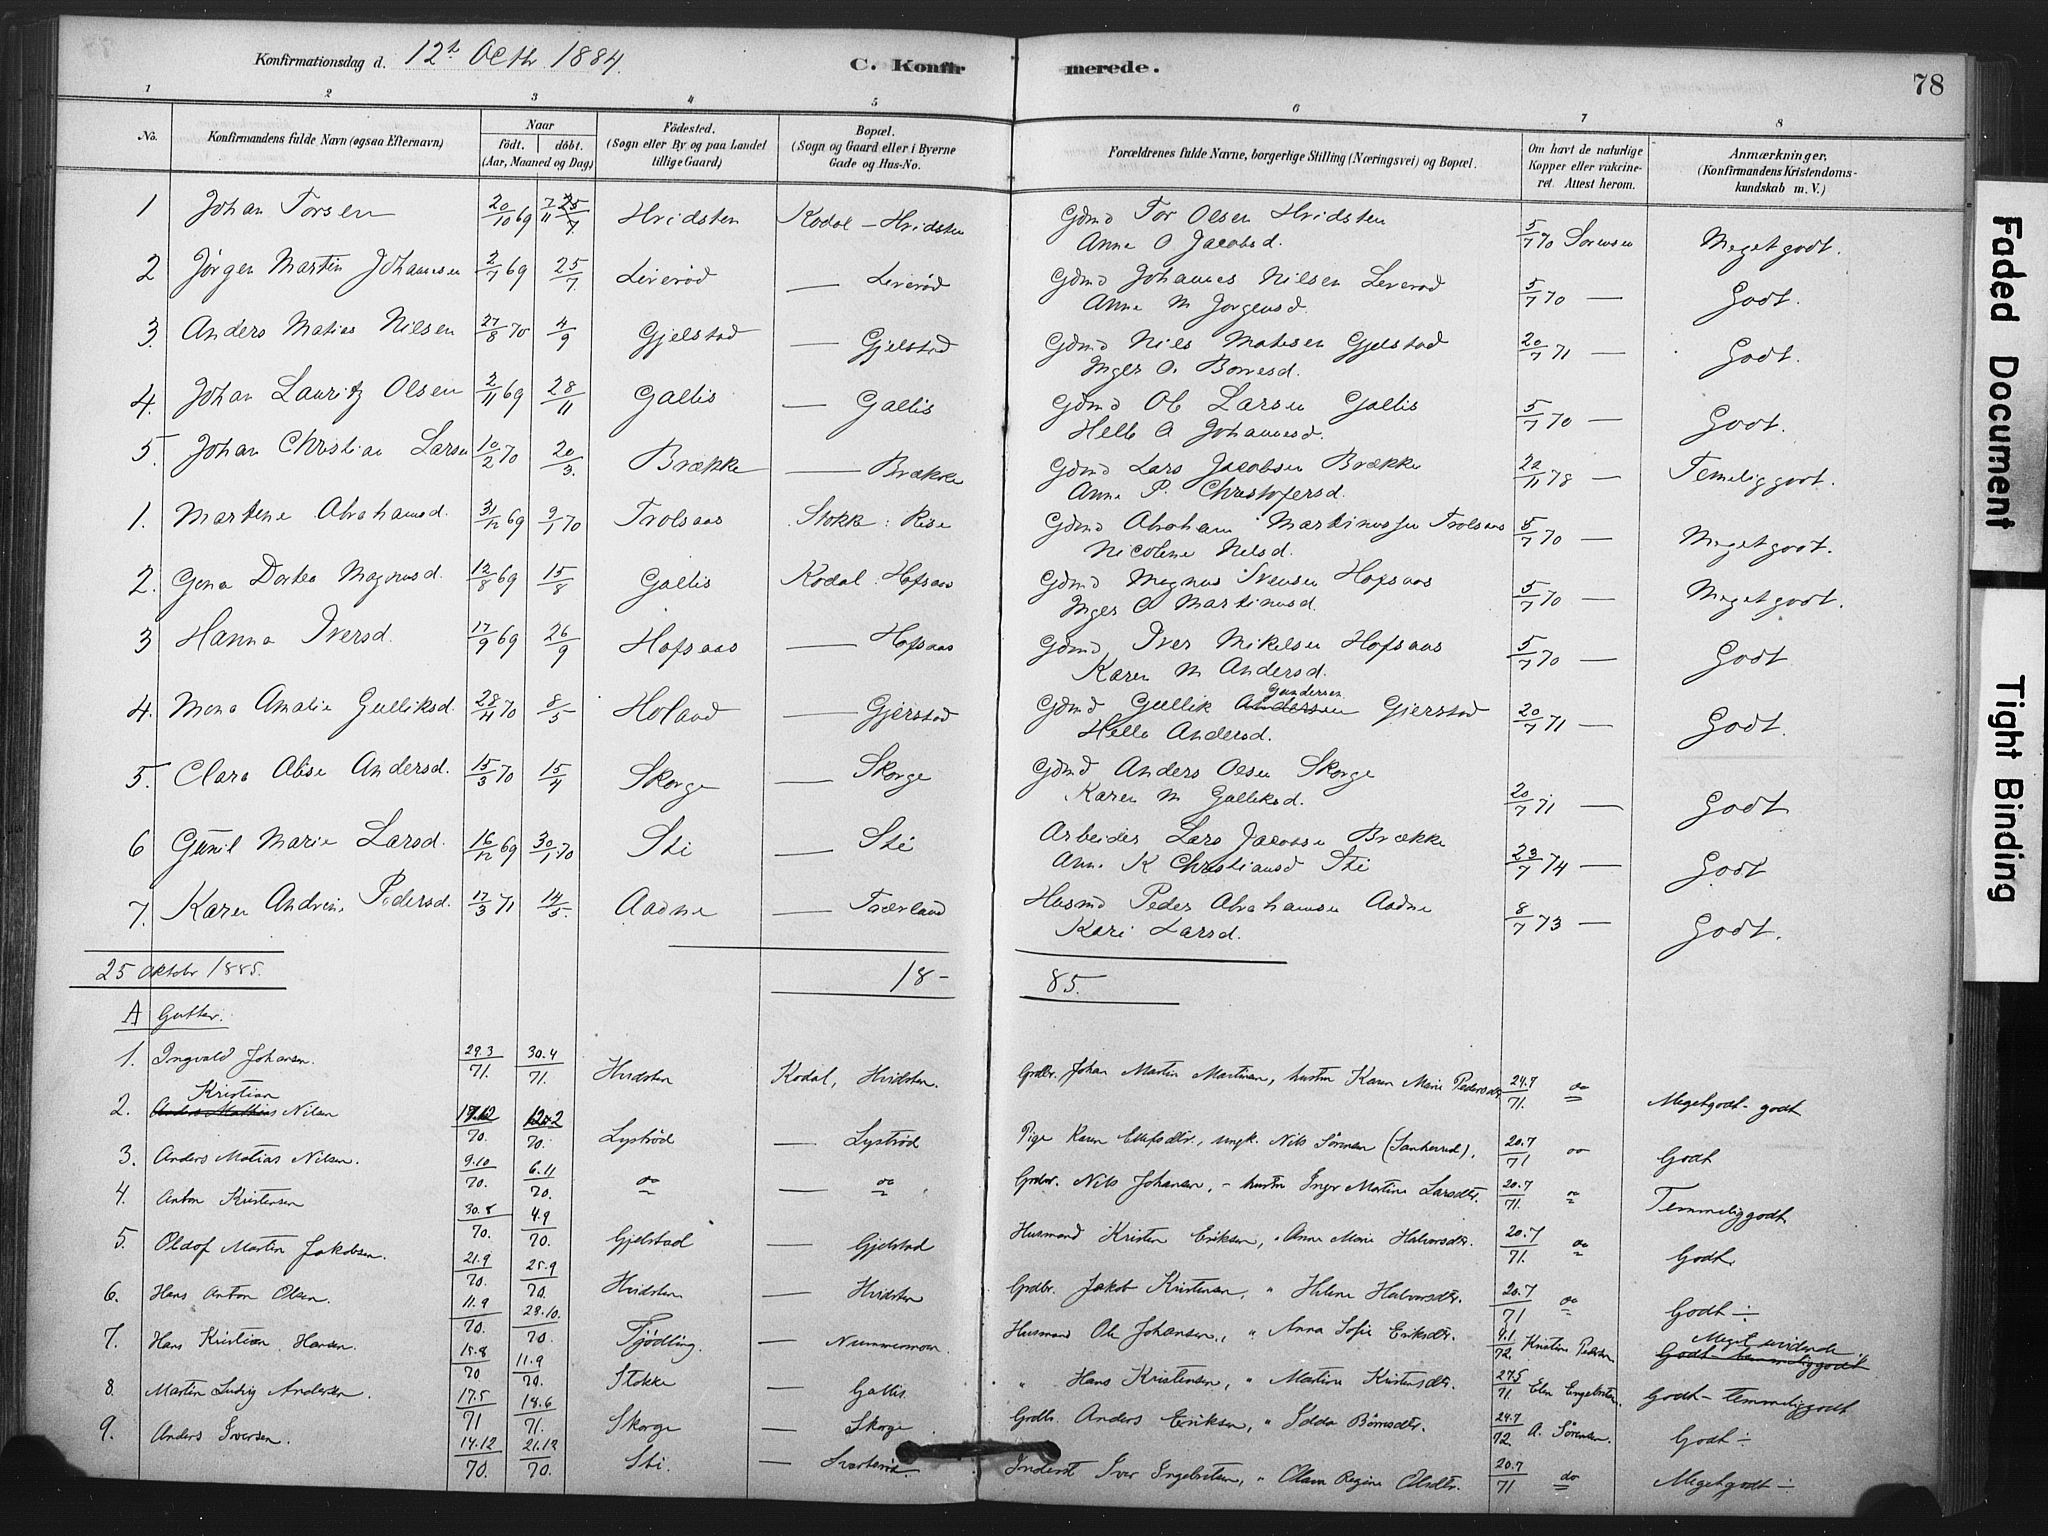 Konfirmationsdag d. 12te Octbr 1884.
C. Konfirmerede.
78
1 2 3 4 5 6 7 8
No.
Konfirmandens fulde Navn (ogsaa Efternavn)
Naar
födt. döbt.
(Aar, Maaned og Dag)
Födested.
(Sogn eller By og paa Landet
tillige Gaard)
Bopæl.
(Sogn og Gaard eller i Byerne
Gade og Hus-No.
Forældrenes fulde Navne, borgerlige Stilling (Næringsvei) og Bopæl.
Om havt de naturlige
Kopper eller vakcine-
ret. Attest herom.
Anmærkninger.
(Konfirmandens Kristendoms-
kundskab m. V.)
1 Johan Torsen 20/10 69 7/11 Hvidsten Kodal - Hvidsten Gdmd Tor Olsen Hvidsten 5/7 70 Sorensen Meget godt.
Anne O Jacobsd.
2 Jørgen Martin Johannesen 2/7 69 25/7. Liverød — Liverød Gdmd Johannes Nilsen Leverød 5/7 70 — Godt.
Anne M Jørgensd.
3. Anders Matias Nilsen 27/8 70 4/9 Gjelstad — Gjelstad Gdmd Nils Matisen Gjelstad 20/7 71 — Godt.
Inger A. Borresd.
4. Johan Lauritz Olsen 2/11 69 28/11 Gallis — Gallis Gdmd Ole Larsen Gallis 5/7 70 — Godt.
Helle A Johannesd.
5. Johan Christian Larsen 10/2 70 20/3. Brække — Brække Gdmd Lars Jacobsen Brække 22/11 78 — Temelig godt.
Anne P. Christofersd.
1. Martine Abrahamsd. 31/12 69 9/1 70 Trolsaas Stokke: Rise Gdmd Abraham Martinussen Trolsaas 5/7 70 — Meget godt.
Nicoline Nilsd.
2. Gina Dortea Magnusd. 12/8 69 15/8 Gallis Kodal: Hofsaas Gdmd Magnus Svensen Hofsaas 5/7 70 — Meget godt.
Inger O Martinusd.
3 Hanna Iversd. 17/9 69 26/9 Hofsaas — Hofsaas Gdmd Iver Mikelsen Hofsaas 5/7 70 — Godt
Karen M Andersd.
4. Mina Amalie Gulliksd. 28/4 70 8/5 Holand — Gjerstad Gdmd Gullik Andersen Gundersen Gjerstad 20/7 71 — Godt.
Helle Andersd.
5. Clara Alise Andersd. 15/3 70 15/4 Skorge — Skorge Gdmd Anders Olsen Skorge 20/7 71 — Godt
Karen M Gulliksd.
6 Gunil Marie Larsd. 16/12 69 30/1 70 Sti — Sti Arbeider Lars Jacobsen Brække 23/7 74 — Godt
Anne K Christiansd Sti
7. Karen Andrine Pedersd. 12/3 71 14/5. Aadne — Tværland Husmd Peder Abrahamsen Aadne 8/7 73 — Godt.
Kari Larsd.
25 oktobr 1885. 18- 85.
A Gutter.
1. Ingvald Johansen. 29.3/71. 30.4/71. Hvidsten Kodal, Hvidsten. Grdbr. Johan Martin Martinsen, hustru Karen Marie Pedersdtr. 24.7/71. do Megetgodt - godt
Kristian
2. Anders Mathias Nilsen 17.12/70. Lystrød — Lystrød Pige Karen Ellefsdtr., ungk. Nils Sörensen (Sankerød). 20.7/71 do Godt
3. Anders Matias Nilsen. 9.10/70. 6.11/70. do — do Grdbr. Nils Johansen, - hustru Inger Martine Larsdtr. 20.7/71. do Temmeliggodt
4. Anton Kristensen 30.8/70. 4.9/70. Gjelstad — Gjelstad Husmand Kristen Eriksen, " Anne Marie Halvorsdtr. 20.7/71. do Godt
5. Oldof Martin Jakobsen. 21.9/70. 25.9/70. Hvidsten — Hvidsten Grdbr. Jakob Kristensen, " Helene Halvorsdtr. 20.7/71 do Godt ÷
6. Hans Anton Olsen. 11.9/70. 23.10/70. Tjödling. — Nummermoen. Husmand Ole Johansen, " Anna Sofie Eriksdtr. 9.1/72. Kristen Pedersen Godt - temmeliggodt
7. Hans Kristian Hansen. 15.8/70 11.9/70. Stokke — Gallis. " Hans Kristensen, " Martine Kristensdtr. 27.5/71. Elen Engebretsen. Godt - temmeliggodt
8. Martin Ludvig Andersen. 17.5/71 18.6/71. Skorge — Skorge Grdbr. Anders Eriksen, " Idda Børresdtr. 24.7/72. A. Sörensen. Godt ÷
9. Anders Iversen. 14.12/70. 21.12/70. Sti. — Svarterød Inderst Iver Engebretsen, " Olava Regine Olsdtr. 20.7/71 do Megetgodt ÷
Faded Document
Tight Binding